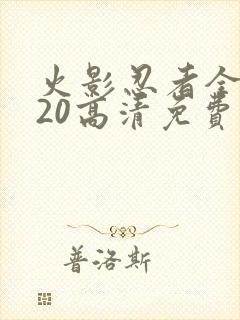 火影忍者全
20高清免費
普洛斯